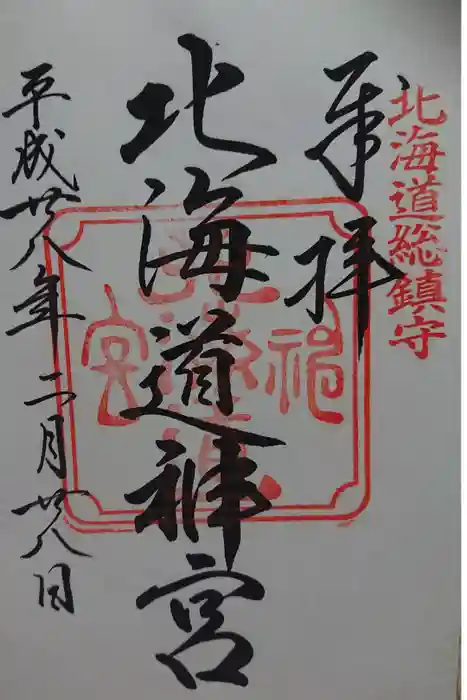 北海道総鎮守
奉拝
北海道神宮
平成廿八年二月廿八日